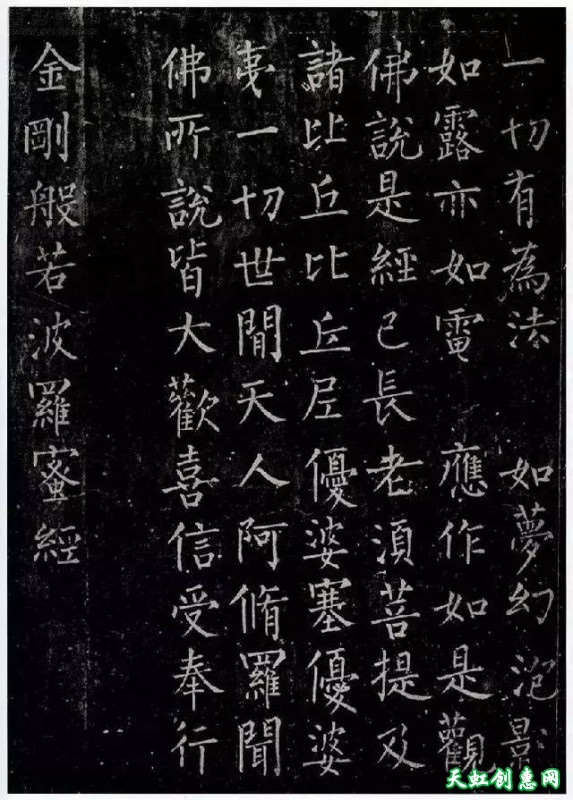 一切有為法 如夢幻泡影
如露亦如電 應作如是觀
佛說是經已長老須菩提及
諸比丘比丘尼優婆塞優婆
夷一切世間天人阿脩羅聞
佛所說皆大歡喜信受奉行
金剛般若波羅蜜經
天虹创惠网